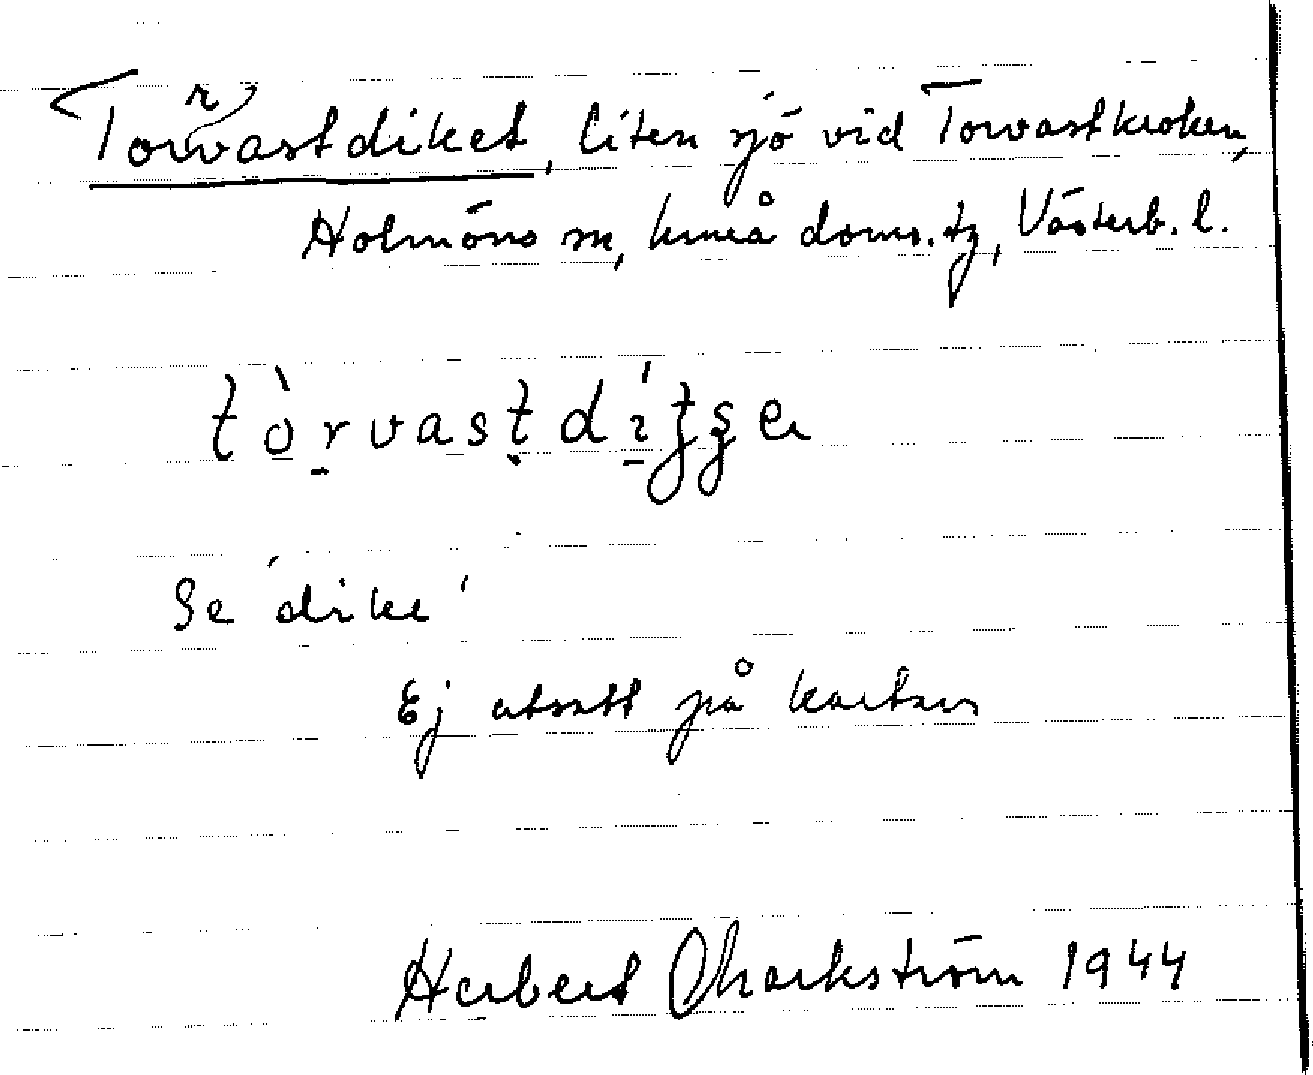 Torvastdiket, liten sjö vid Torvastkroken,
Holmöns sn, Umeå doms. tg, Västerb. l.
tòrvastdítʂe
Se 'dike'
Ej utsatt på kartan
Herbert Markström 1944